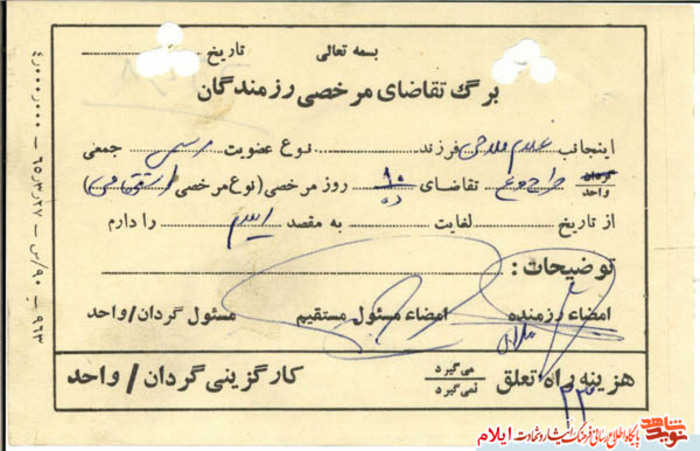 بسمه تعالی
تاریخ
برگ تقاضای مرخصی رزمندگان
اینجانب غلام ملاحی فرزند نوع عضویت رسمی جمعی
گردان/واحد تقاضای ۱۰ ده روز مرخصی (نوع مرخصی استحقاقی)
از تاریخ لغایت به مقصد ایلام را دارم
توضیحات :
امضاء رزمنده امضاء مسئول مستقیم مسئول گردان/واحد
هزینه راه تعلق می‌گیرد نمی‌گیرد کارگزینی گردان / واحد
۲۳
۹۶۳ – ۹۰/س – ۶۵/۳/۲۷ – ۴۰۰۰۰۰۰
نوید شاهد
پایگاه اطلاع رسانی فرهنگ ایثار و شهادت ایلام